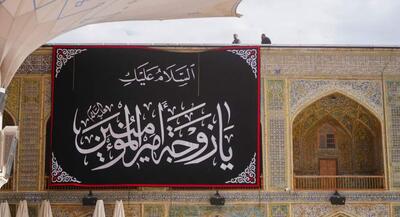 السلام عليك
يا زوجة أمير المؤمنين عليه السلام